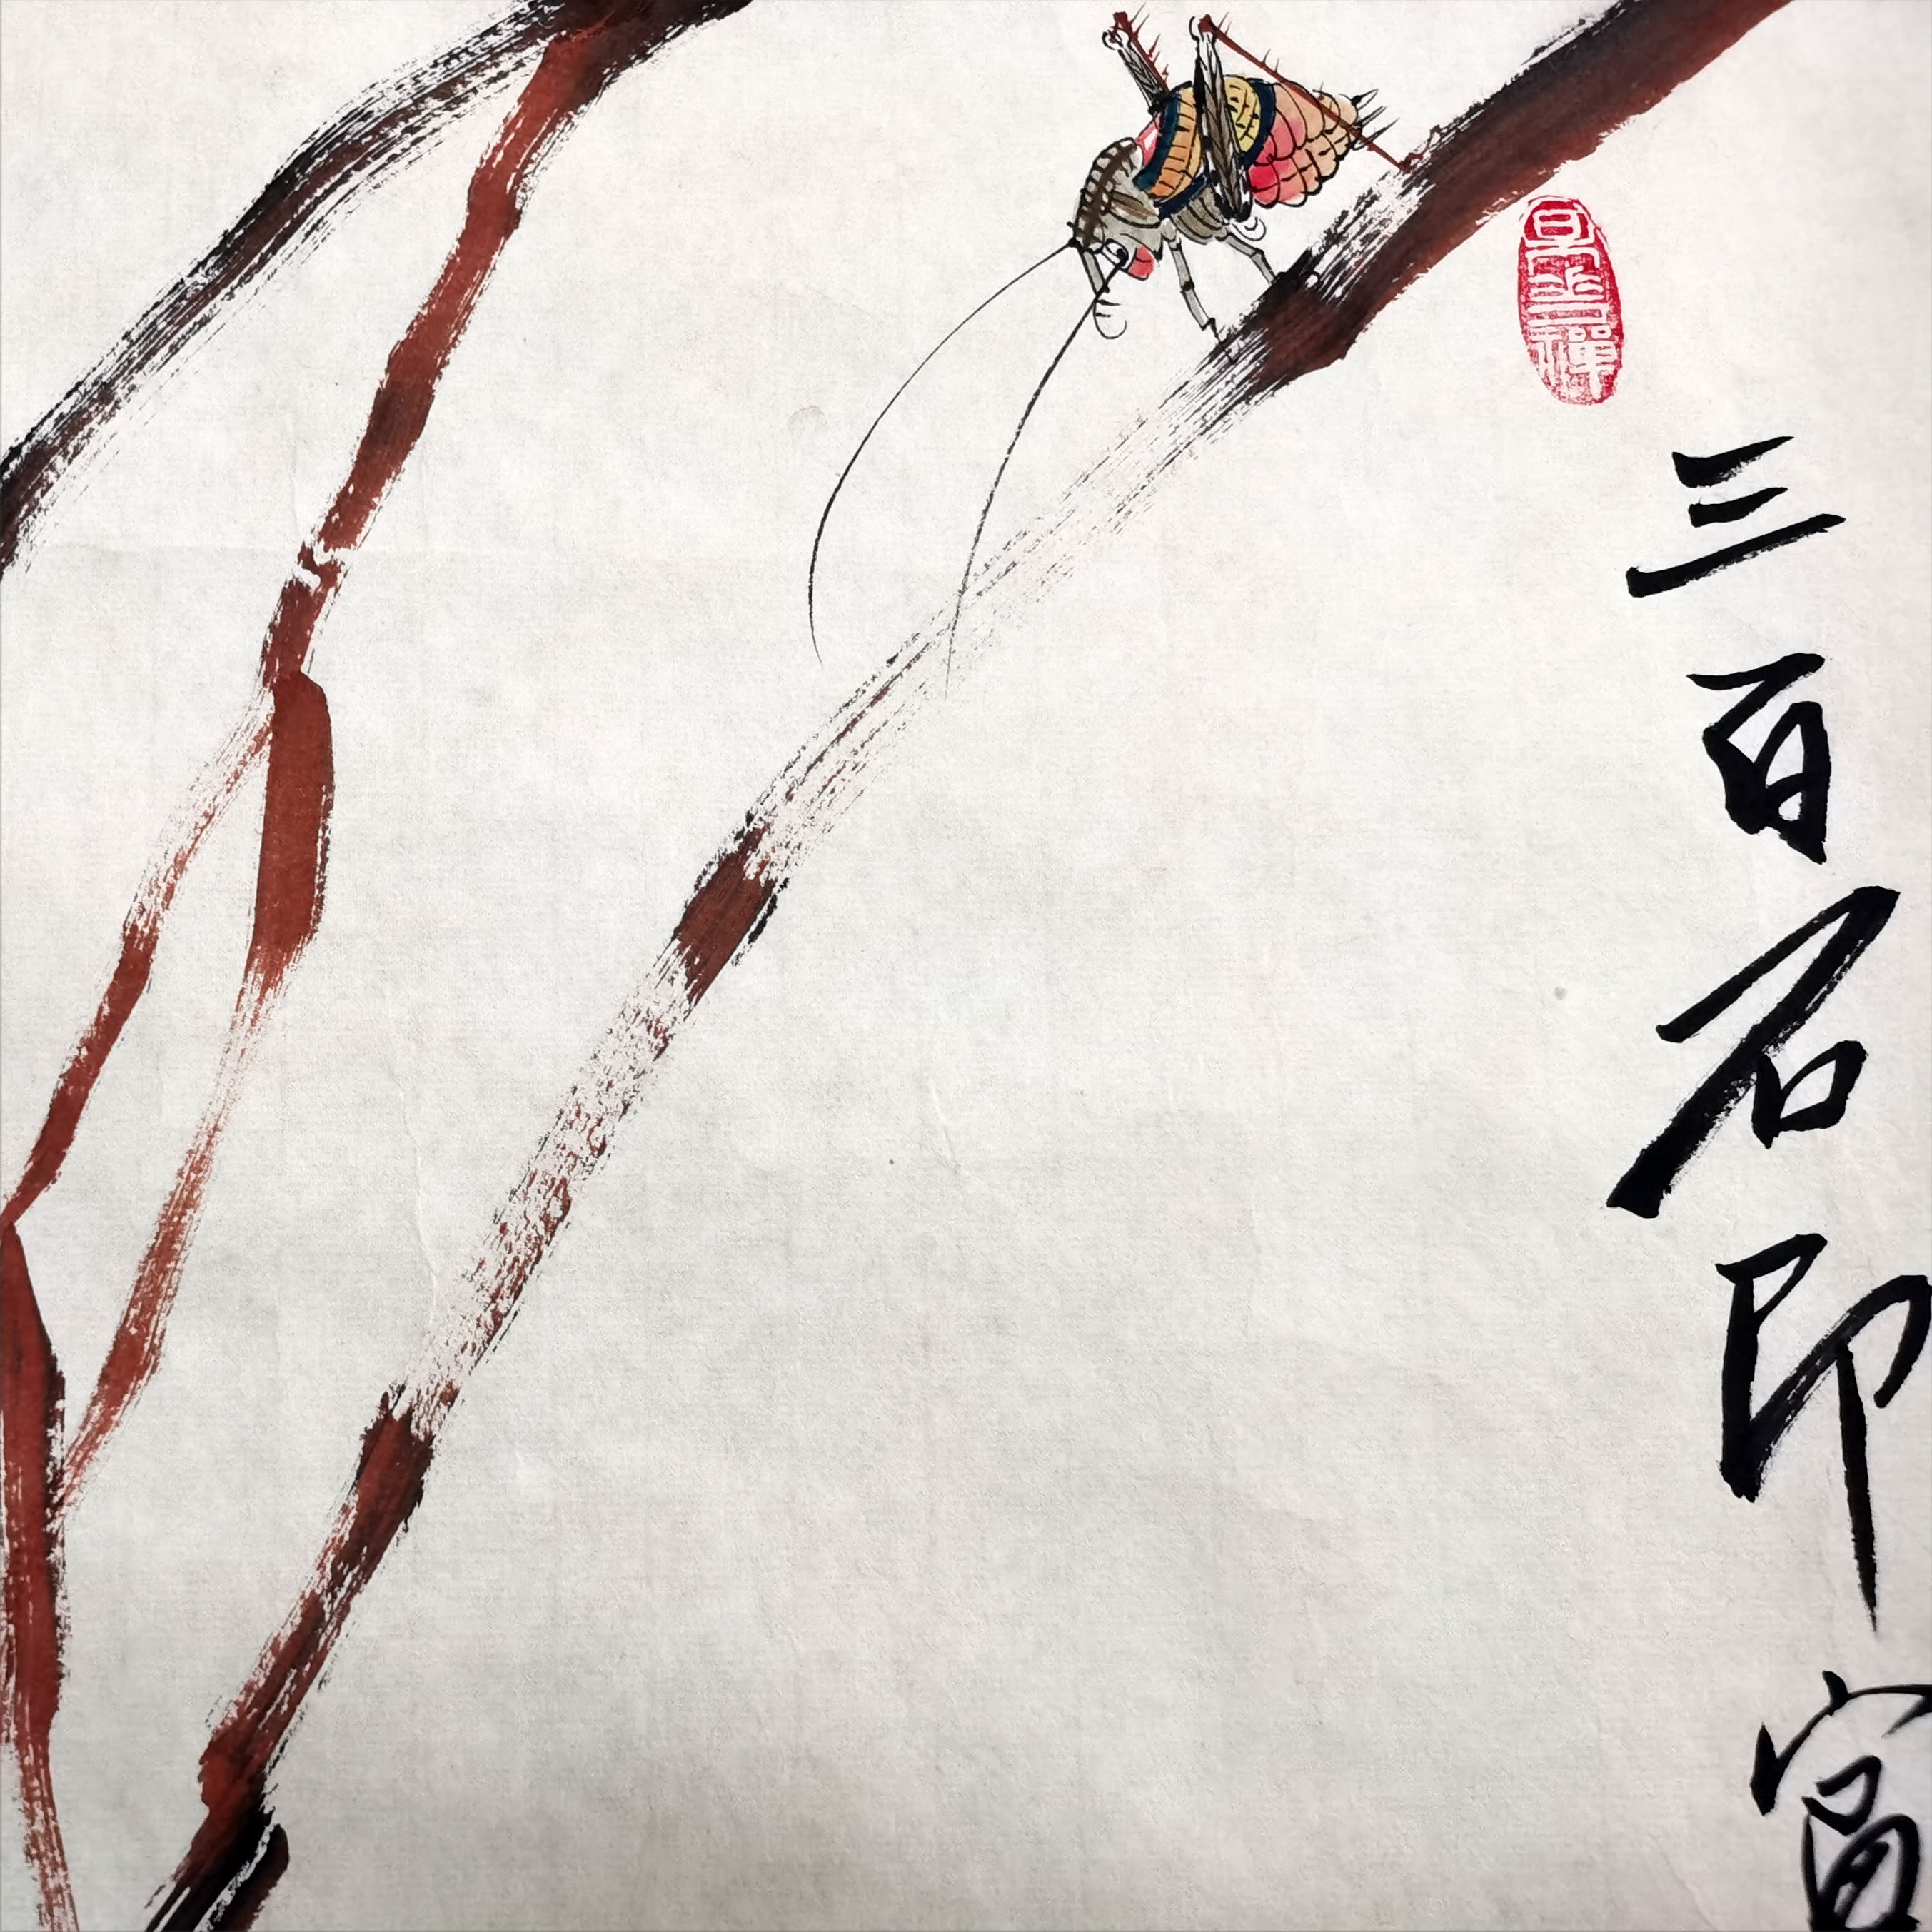 三百石印富